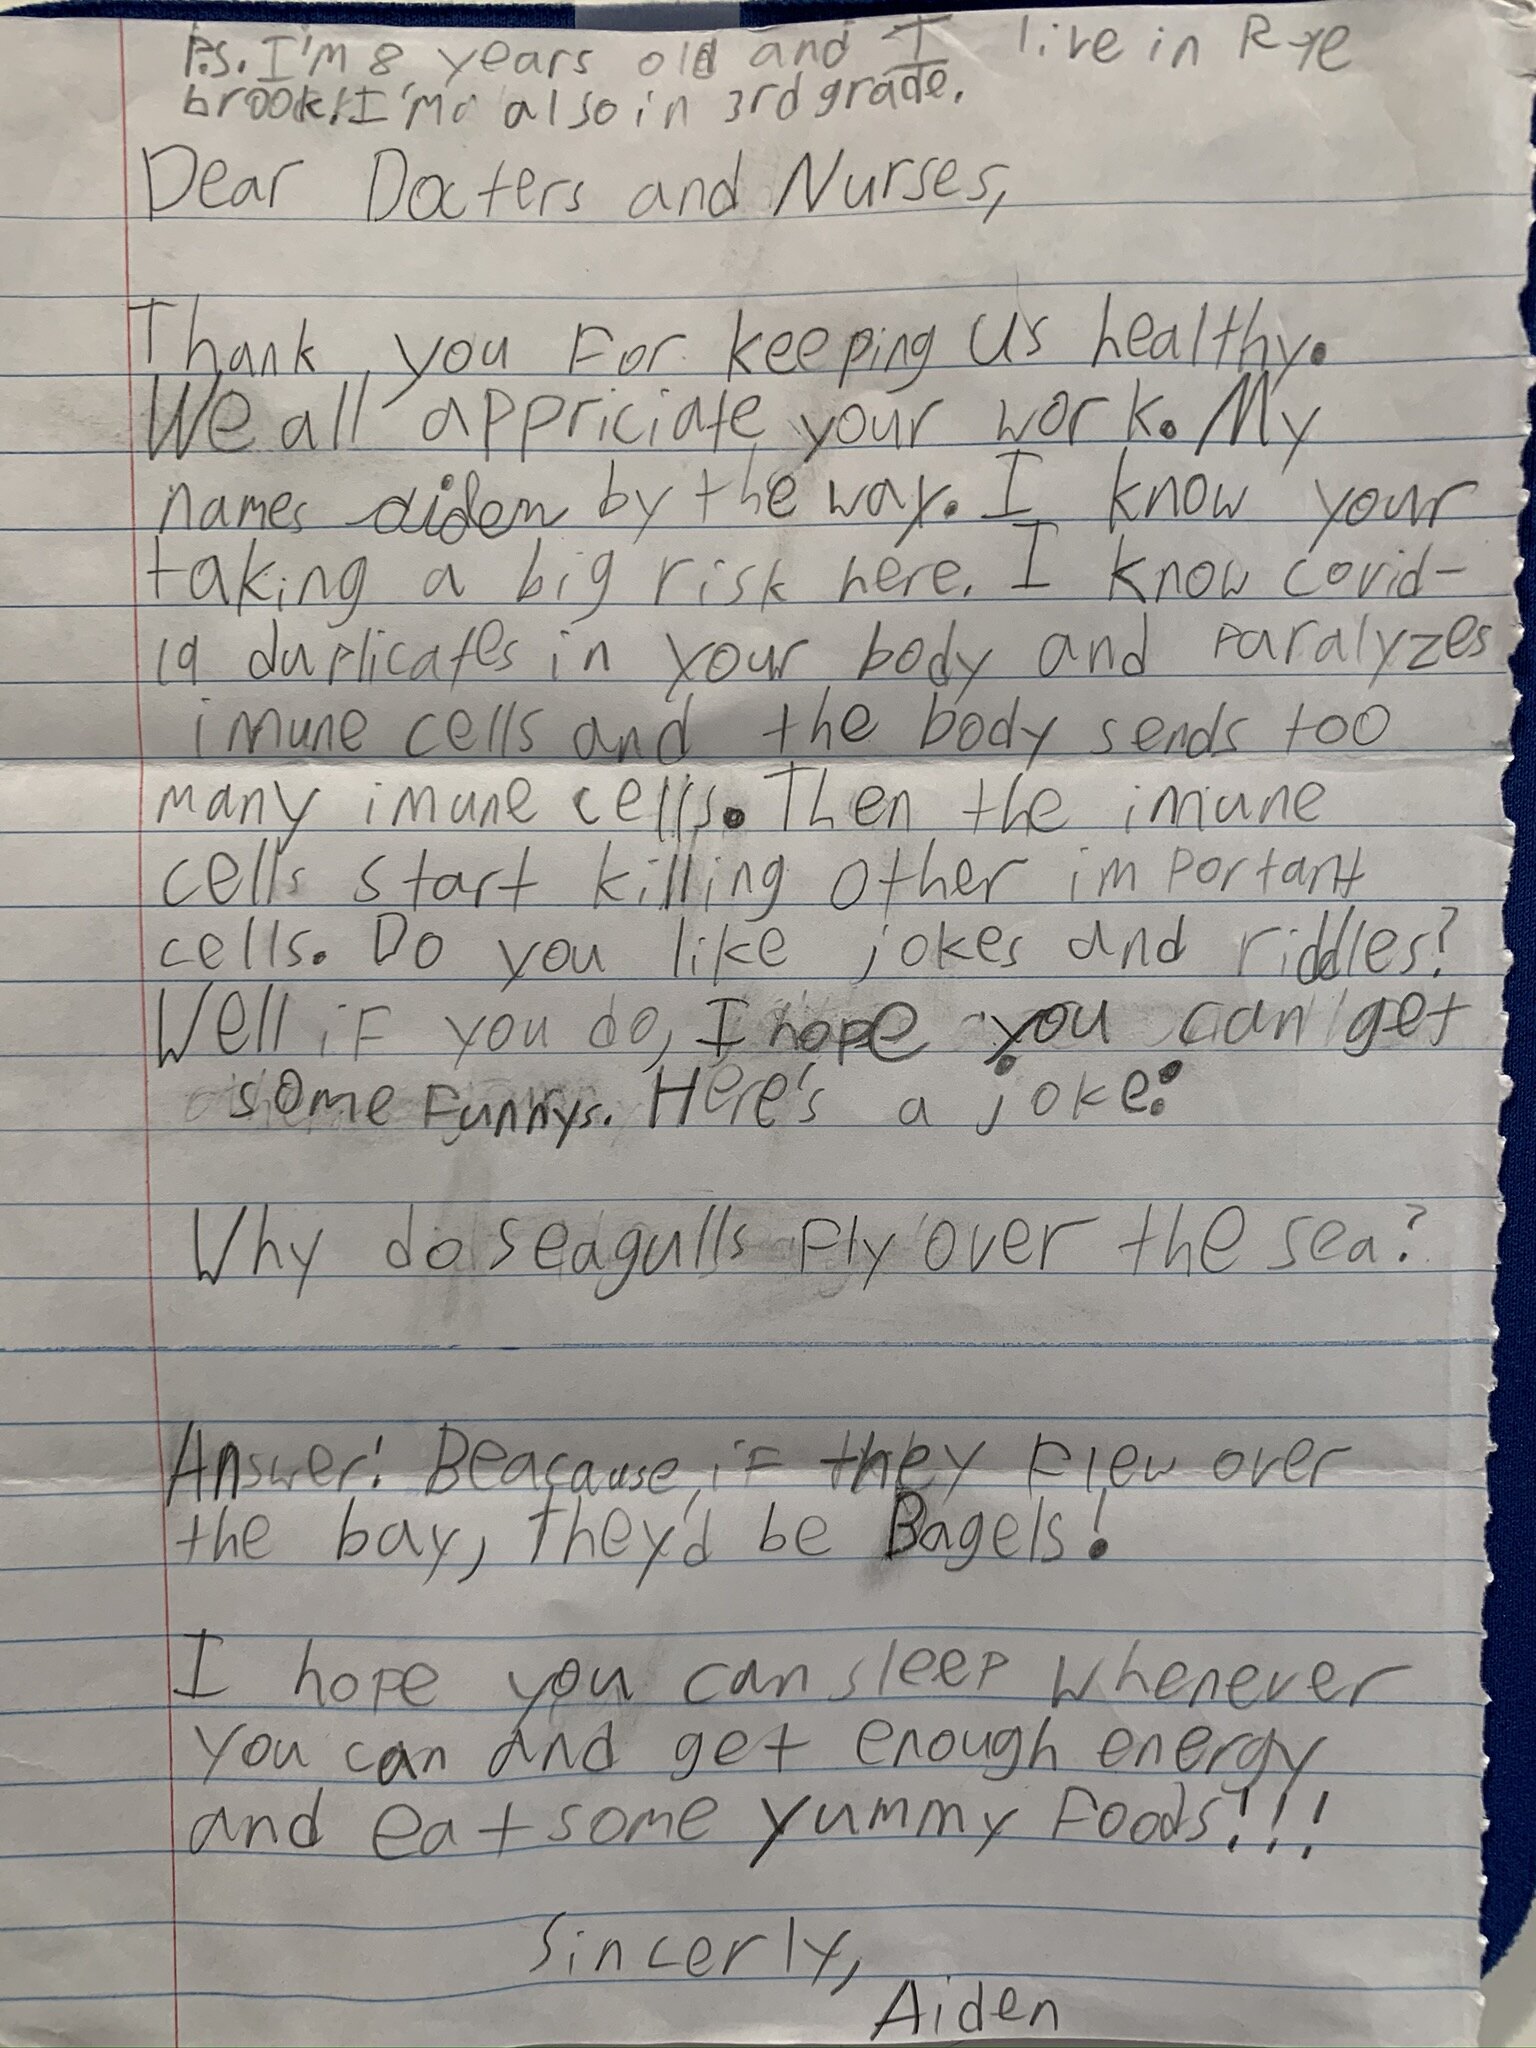 P.S. I'm 8 years old and I live in Rye
brook! I'm also in 3rd grade.
Dear Docters and Nurses,
Thank you For keeping us healthy.
We all appriciate your work. My
names aiden by the way. I know your
taking a big risk here. I know covid-
19 duplicates in your body and Paralyzes
imune cells and the body sends too
many imune cells. Then the imune
cells start killing other important
cells. Do you like jokes and riddles?
Well if you do, I hope you can get
some Funnys. Here's a joke:
Why do seagulls Fly over the sea?
Answer: Beacause, if they Flew over
the bay, they'd be Bagels!
I hope you can sleep whenever
you can and get enough energy
and eat some yummy Foods!!!
Sincerly,
Aiden